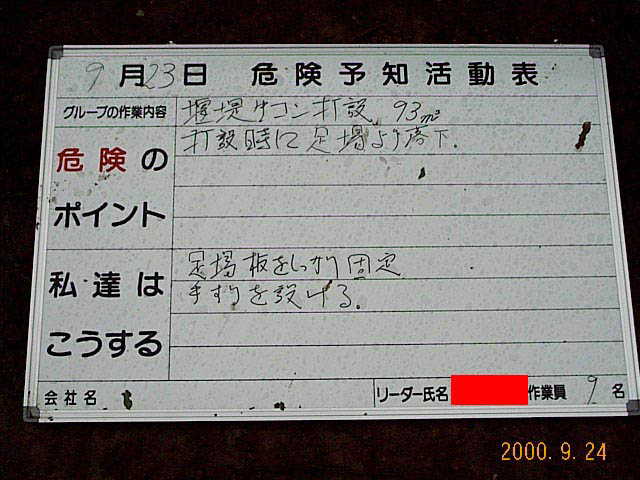 9月23日 危険予知活動表
グループの作業内容 堰堤サコン打設 93m³
危険のポイント 打設時に足場より落下.
私達はこうする 足場板をしっかり固定
手すりを設ける.
会社名 リーダー氏名 作業員 9名
2000. 9. 24